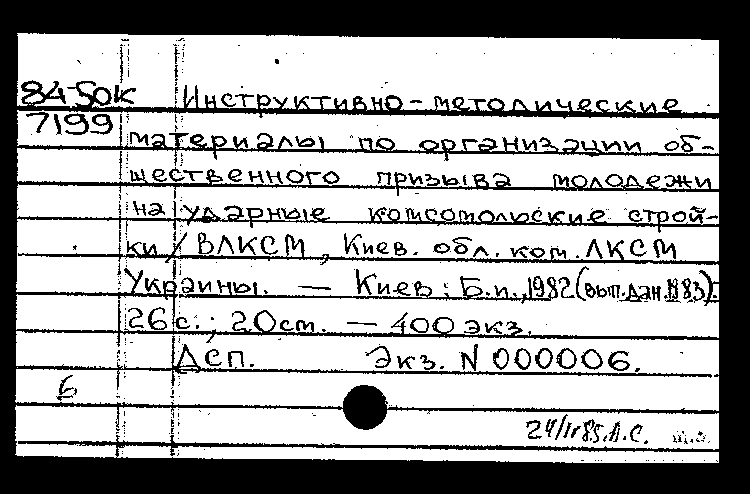 84-50к Инструктивно-методические
7199 материалы по организации об-
щественного призыва молодежи
на ударные комсомольские строй-
ки / ВЛКСМ, Киев. обл. ком. ЛКСМ
Украины. — Киев : Б.и., 1982 (вып. дан. 1983).
26 с. ; 20 см. — 400 экз.
ДСП. Экз. N 000006.
6
А.С.